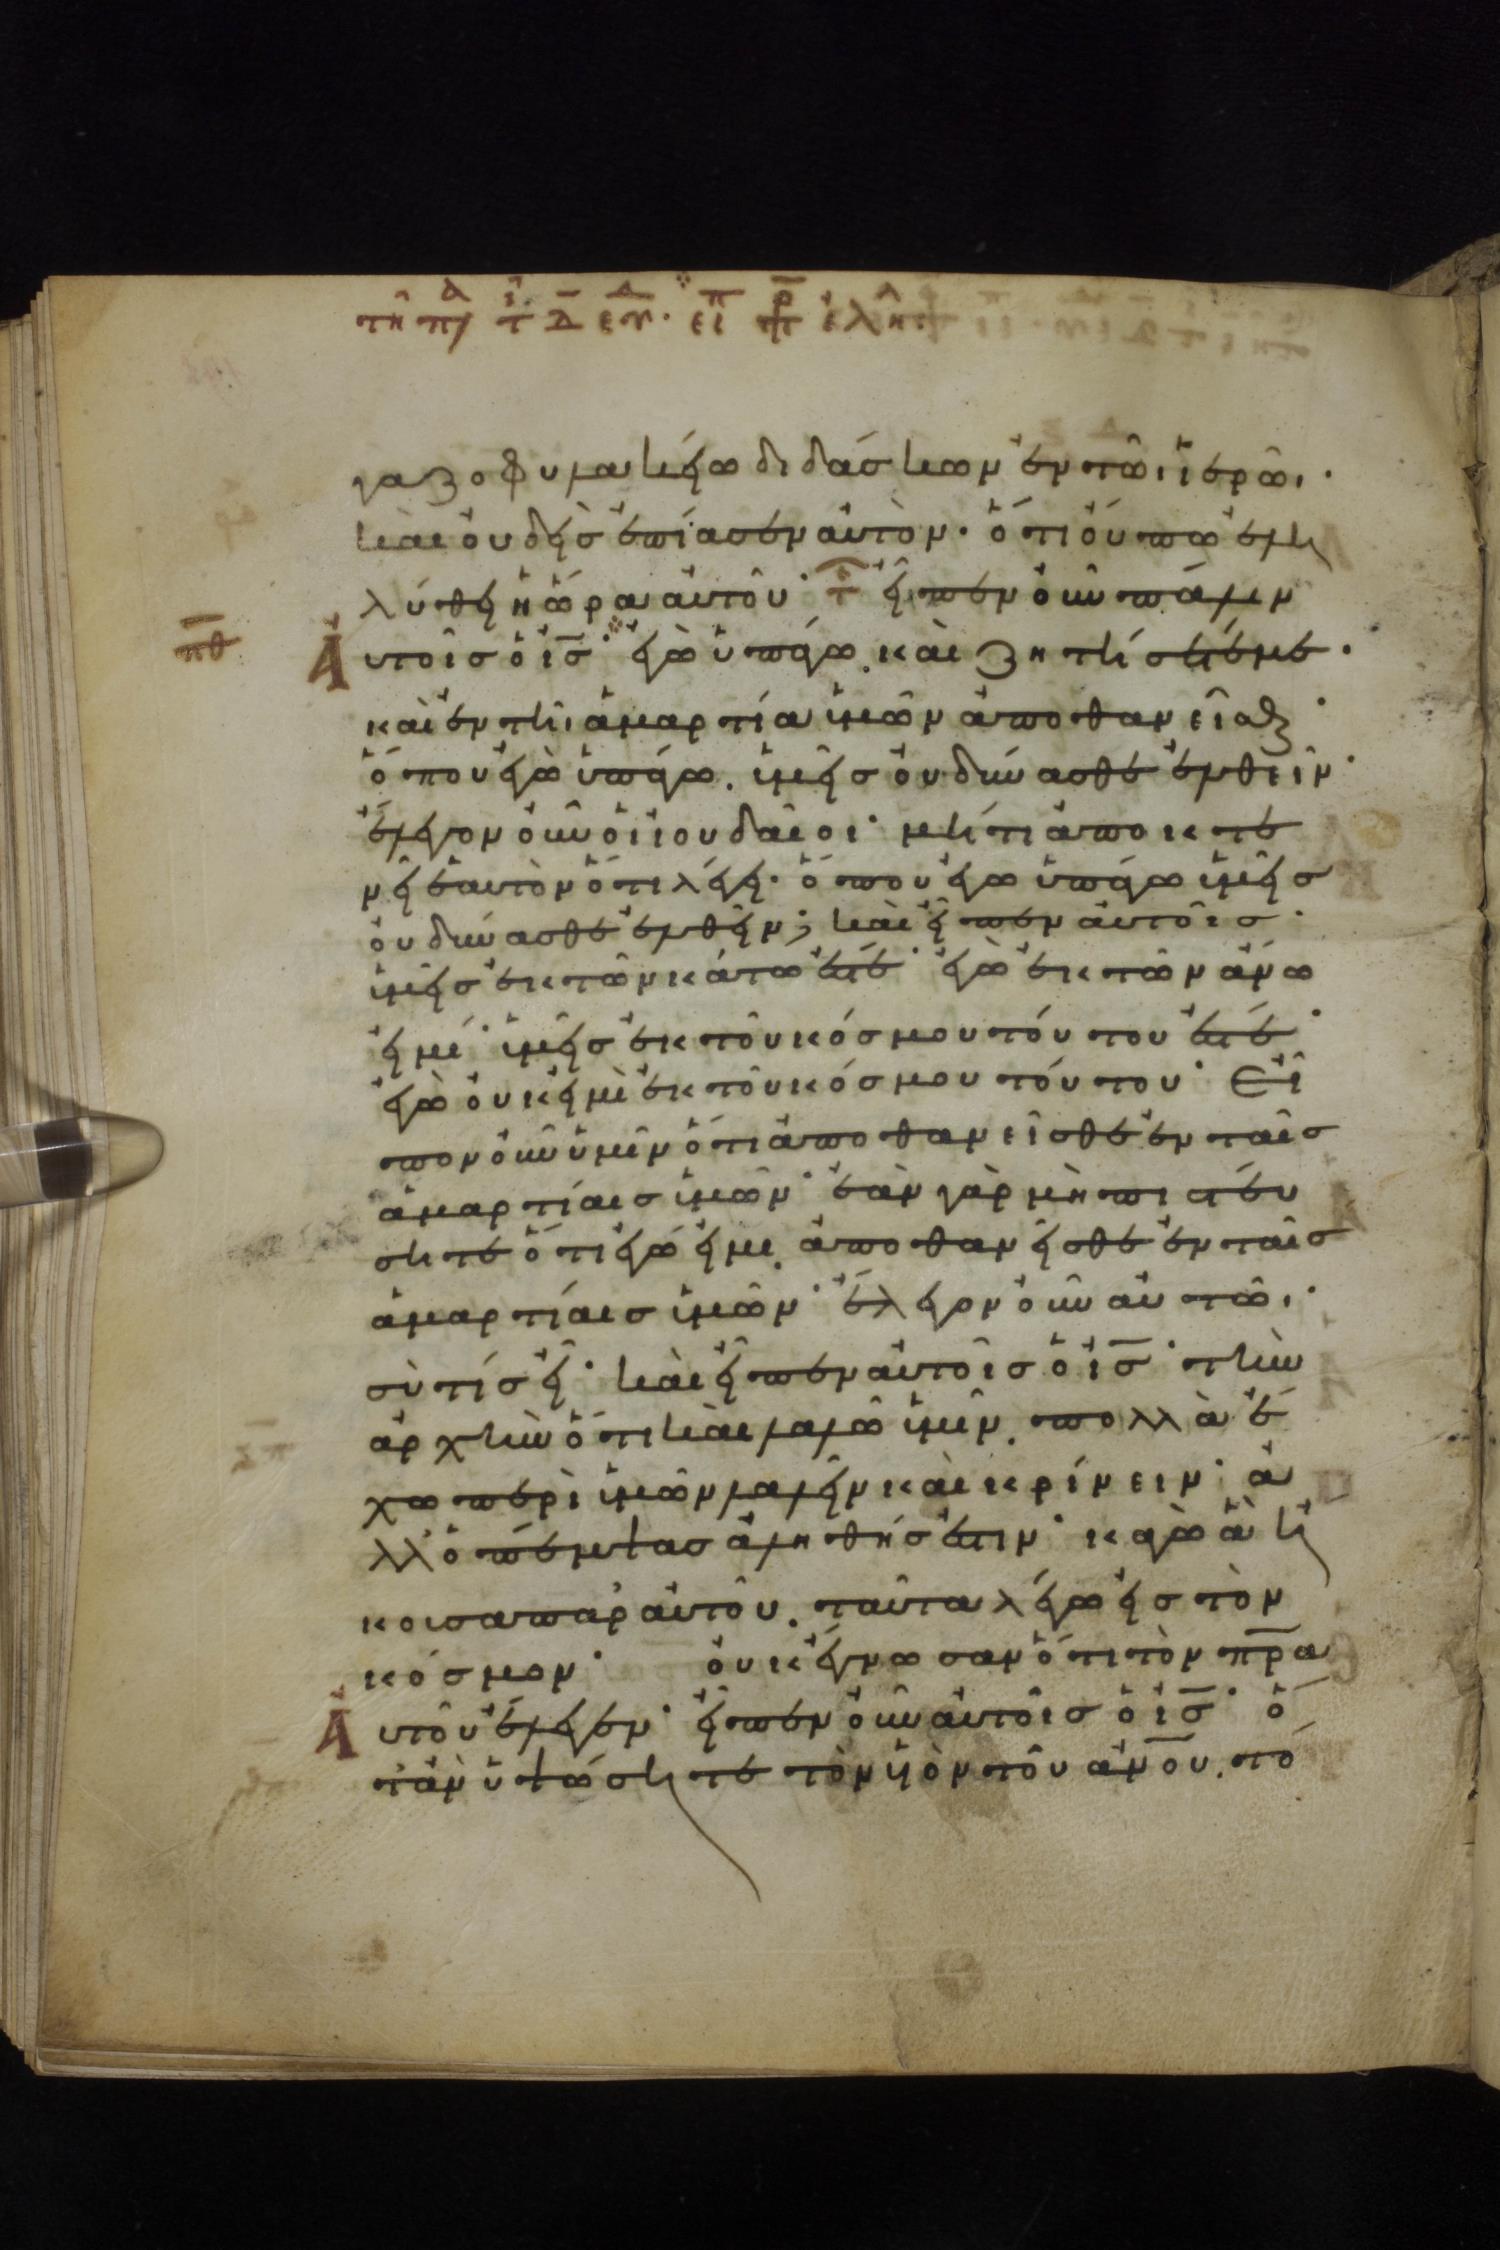 γαζοφυλακείω διδάσκων ἐν τῶι ἱερῶι·
καὶ οὐδεὶς ἐπίασεν αὐτὸν· ὅτι οὔπω ἐλη
λύθει ἡ ὥρα αὐτοῦ· εἶπεν οὖν πάλιν
πθ
Αὐτοῖς ὁ ις· ἐγὼ ὑπάγω, καὶ ζητήσετέ με·
καὶ ἐν τῆι ἁμαρτία ὑμῶν ἀποθανεῖσθε·
ὅπου ἐγὼ ὑπάγω, ὑμεῖς οὐ δύνασθε ἐλθεῖν·
ἔλεγον οὖν οἱ ἰουδαῖοι· μήτι ἀποκτε
νεῖ ἑαυτὸν ὅτι λέγει· ὅπου ἐγὼ ὑπάγω ὑμεῖς
οὐ δύνασθε ἐλθεῖν; καὶ εἶπεν αὐτοῖς·
ὑμεῖς ἐκ τῶν κάτω ἐστέ· ἐγὼ ἐκ τῶν ἄνω
εἰμί· ὑμεῖς ἐκ τοῦ κόσμου τούτου ἐστέ·
ἐγὼ οὐκ εἰμὶ ἐκ τοῦ κόσμου τούτου· Εἶ
πον οὖν ὑμῖν ὅτι ἀποθανεῖσθε ἐν ταῖς
ἁμαρτίαις ὑμῶν· ἐὰν γὰρ μὴ πιστεύ
σητε ὅτι ἐγώ εἰμι, ἀποθανεῖσθε ἐν ταῖς
ἁμαρτίαις ὑμῶν· ἔλεγον οὖν αὐτῶι·
σὺ τίς εἶ· καὶ εἶπεν αὐτοῖς ὁ ις· τὴν
ἀρχὴν ὅτι καὶ λαλῶ ὑμῖν, πολλὰ ἔ
χω περὶ ὑμῶν λαλεῖν καὶ κρίνειν· ἀ
λλ' ὁ πέμψας ἀληθής ἐστιν· κἀγὼ ἃ ἤ
κουσα παρ' αὐτοῦ, ταῦτα λέγω εἰς τὸν
κόσμον· οὐκ ἔγνωσαν ὅτι τὸν πρα
Αὐτοῦ ἔλεγεν· εἶπεν οὖν αὐτοῖς ὁ ις· ὅ
τἂν ὑψώσητε τὸν υἱὸν τοῦ ανου, τό